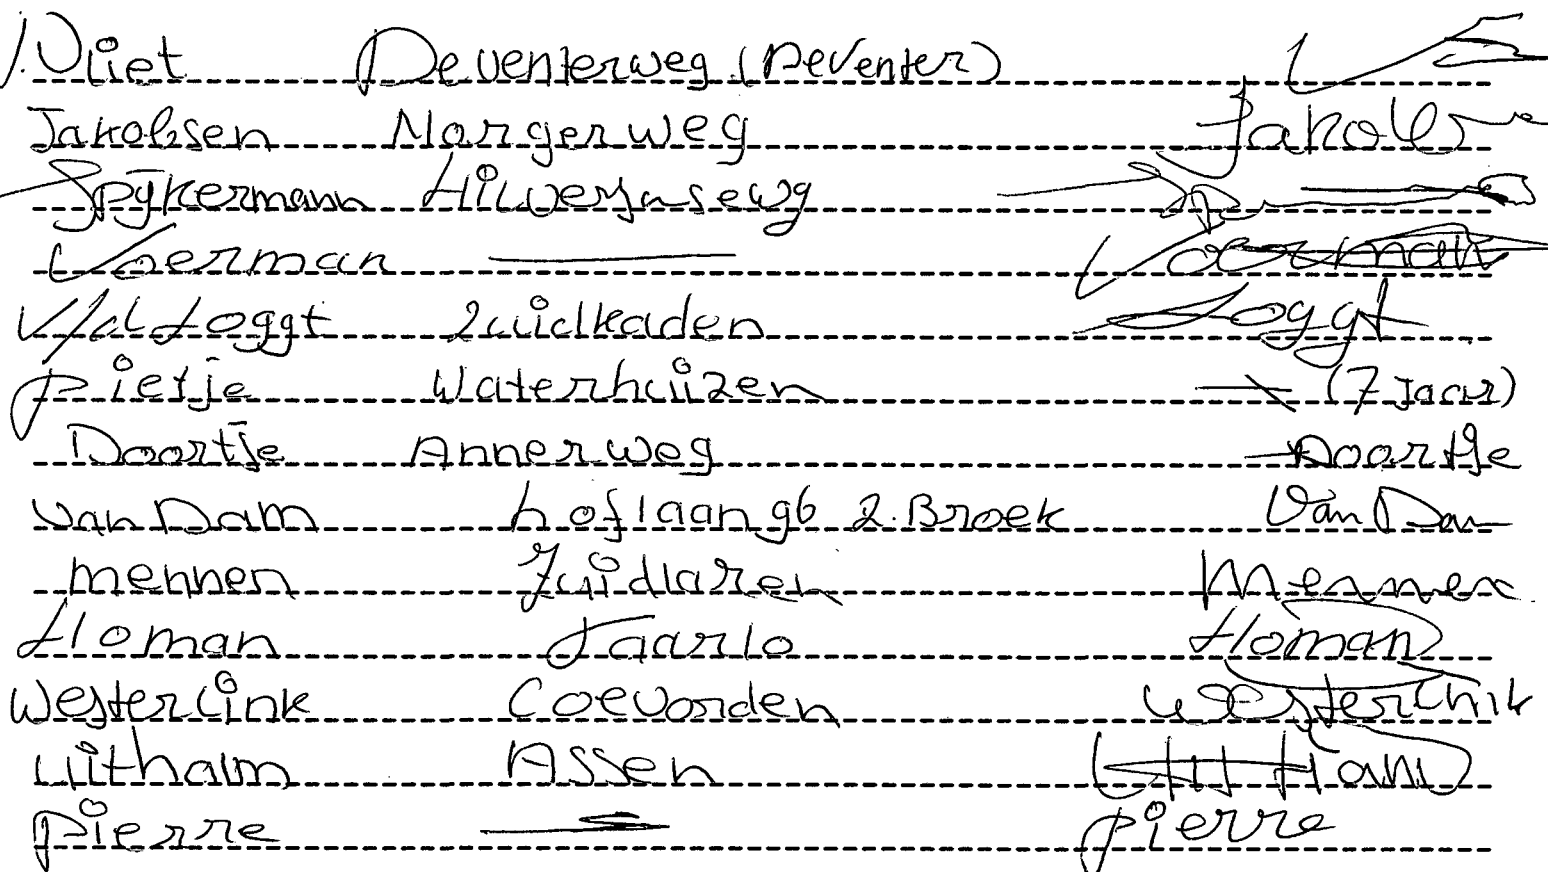 J. Vliet Deventerweg (Deventer)
Jakobsen Norgerweg Jakobs
Spijkermann
Voerman Voorman
V/d Loggt Zuidkaden Loggt
Pietje Waterhuizen (7 Jaar)
Doortje Annerweg Doortje
van Dam hoflaan 96 2. Broek Van Dam
mennen Zuidlaren Mennen
Homan Taarlo Homan
Westerlink Coevorden Westerlink
Uithalm Assen
Pierre Pierre